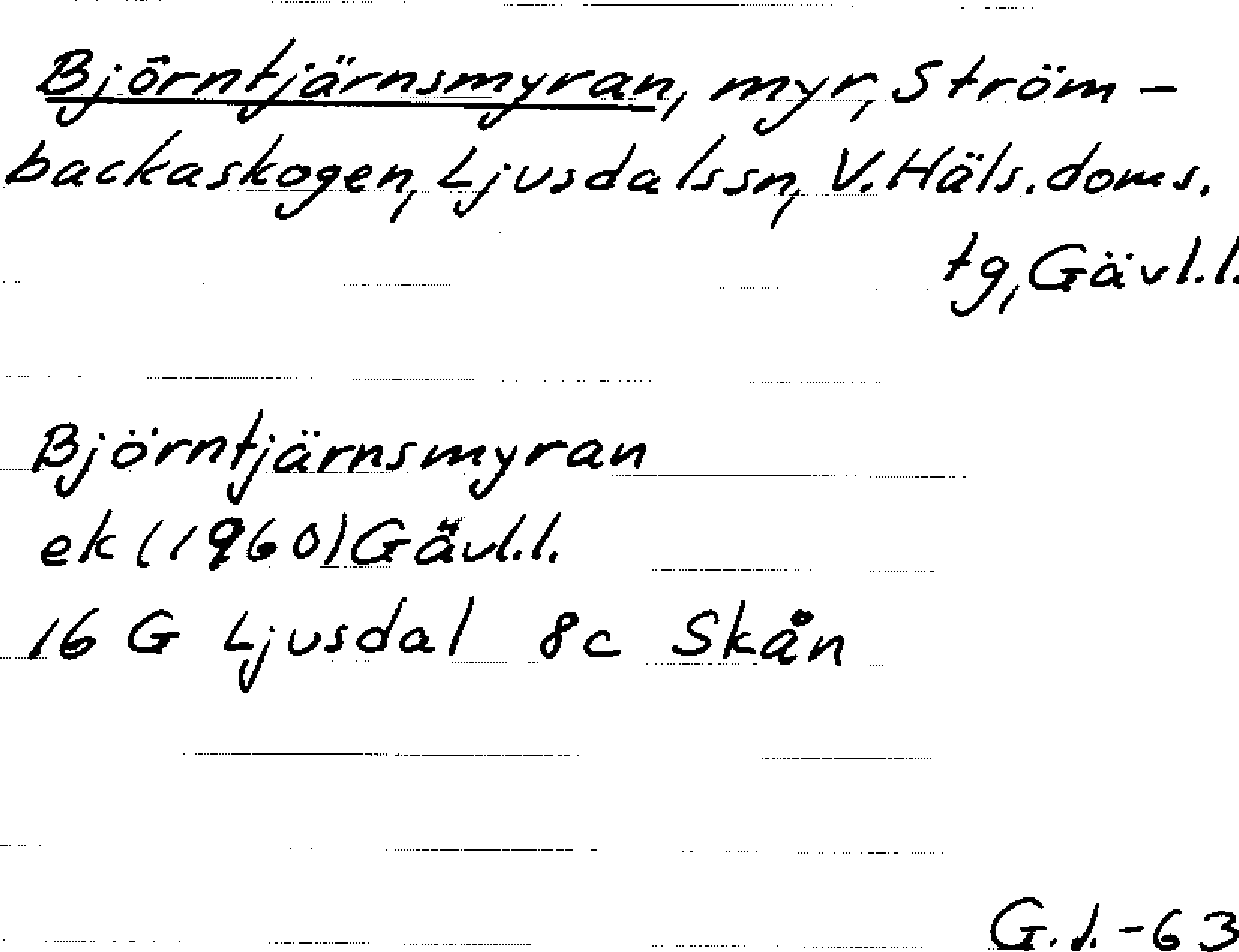 Björntjärnsmyran, myr, Ström-
backaskogen, Ljusdalssn, V.Häls.doms.
tg, Gävl.l.
Björntjärnsmyran
ek (1960) Gävl.l.
16 G Ljusdal 8c Skån
G.J.-63